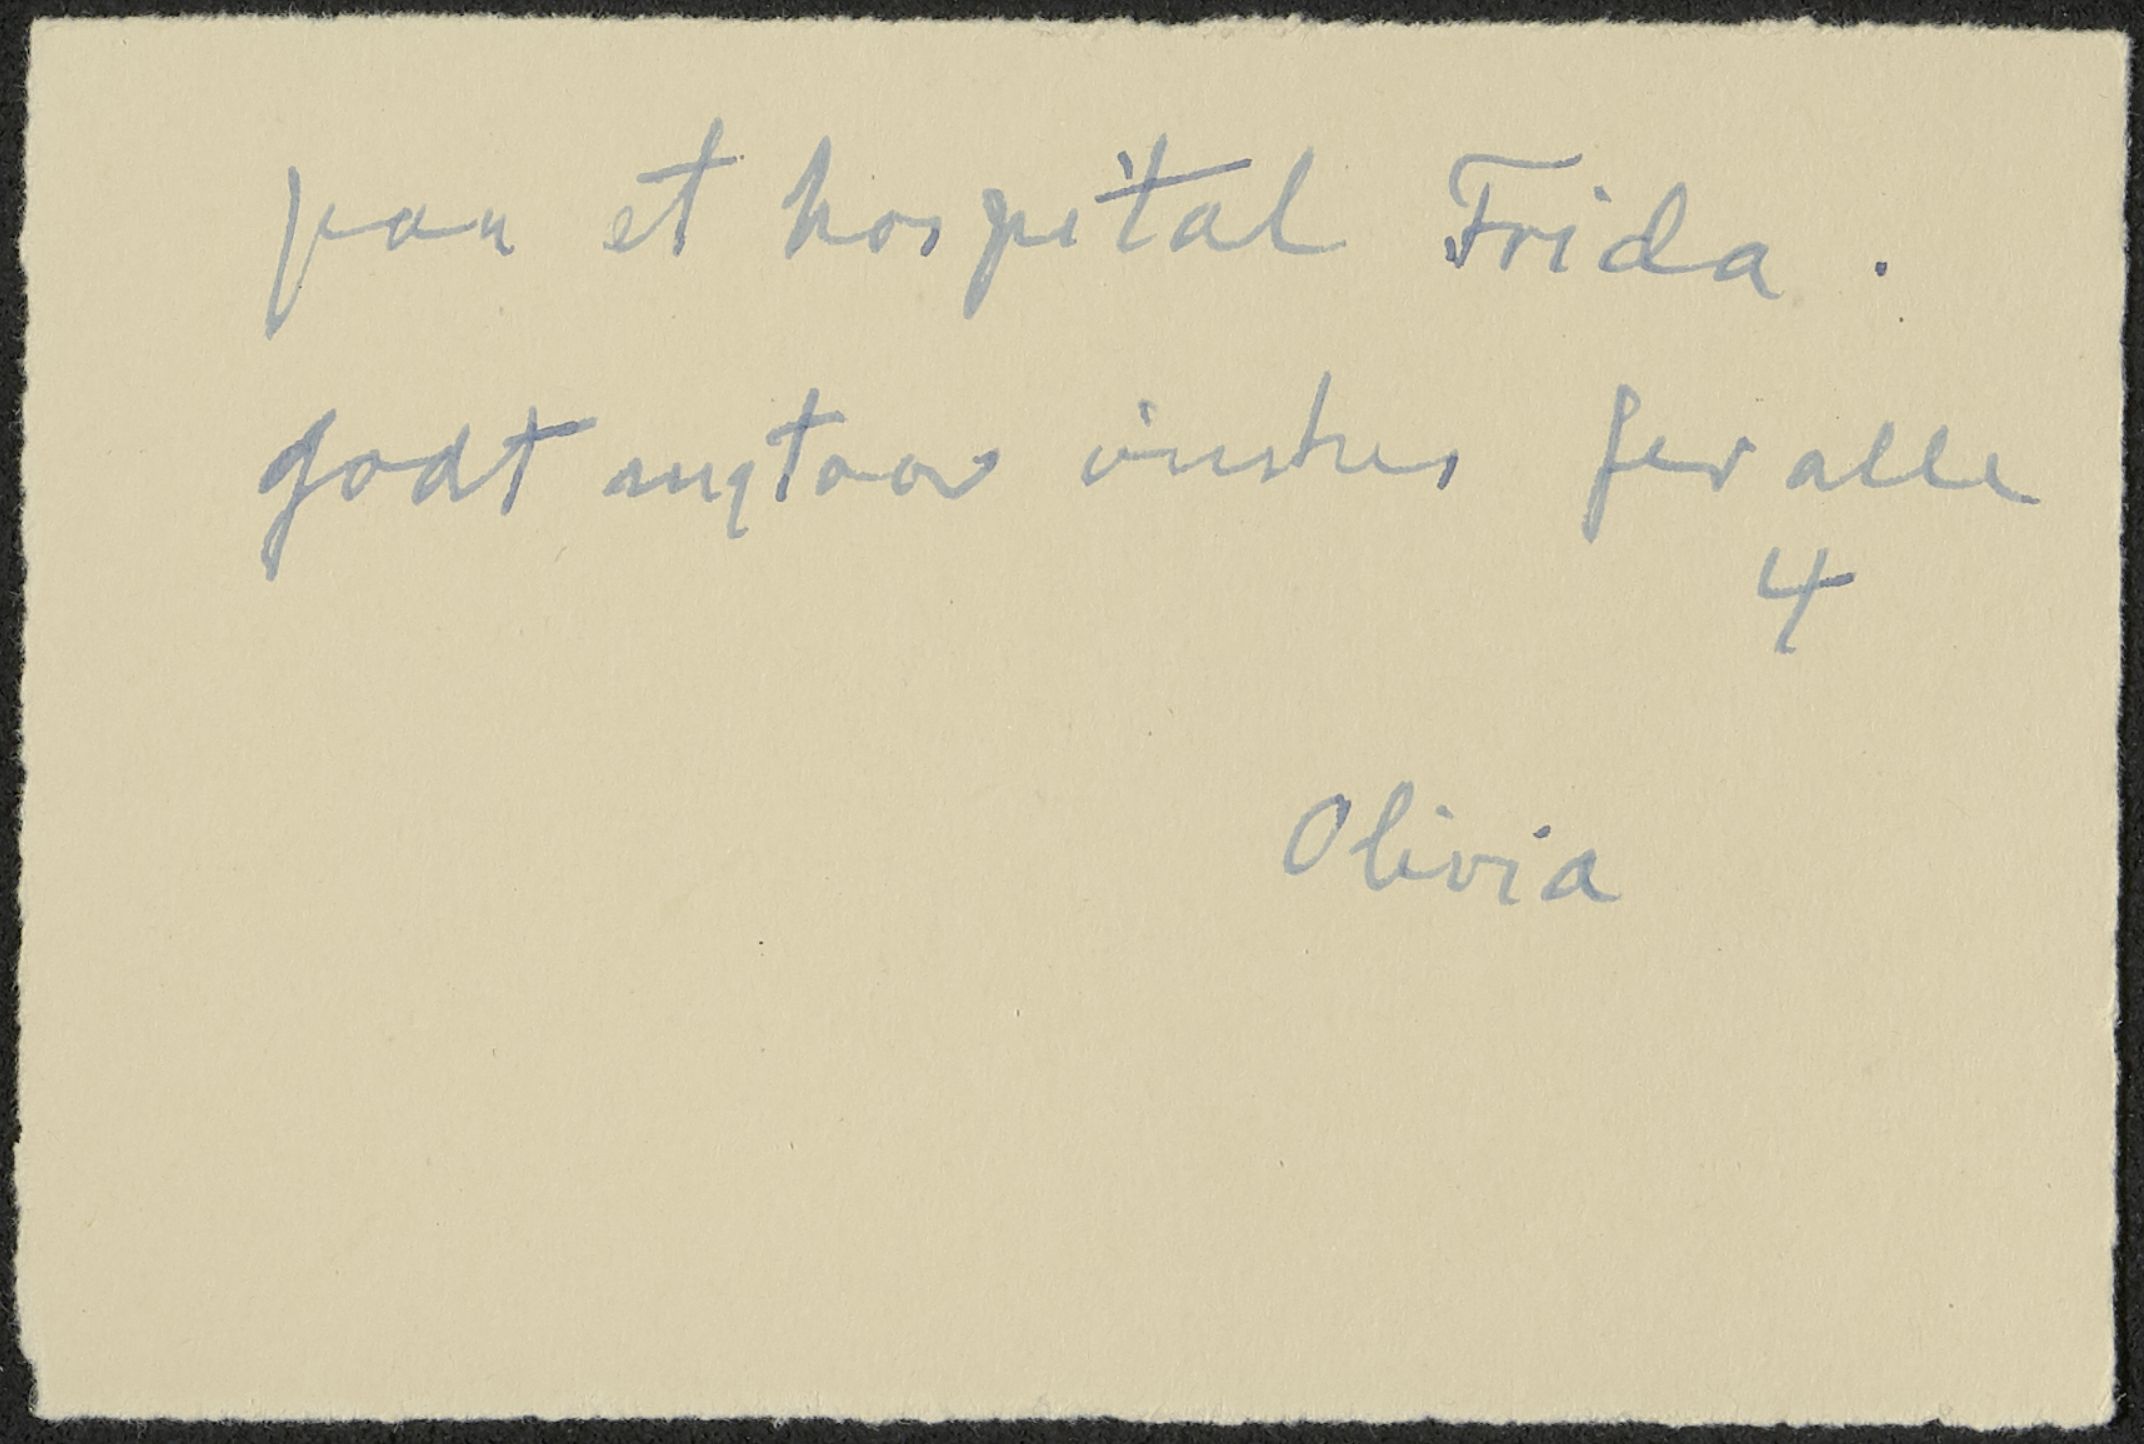 paa et hospital Frida.
godt nytaar ønskes jer alle
4
Olivia